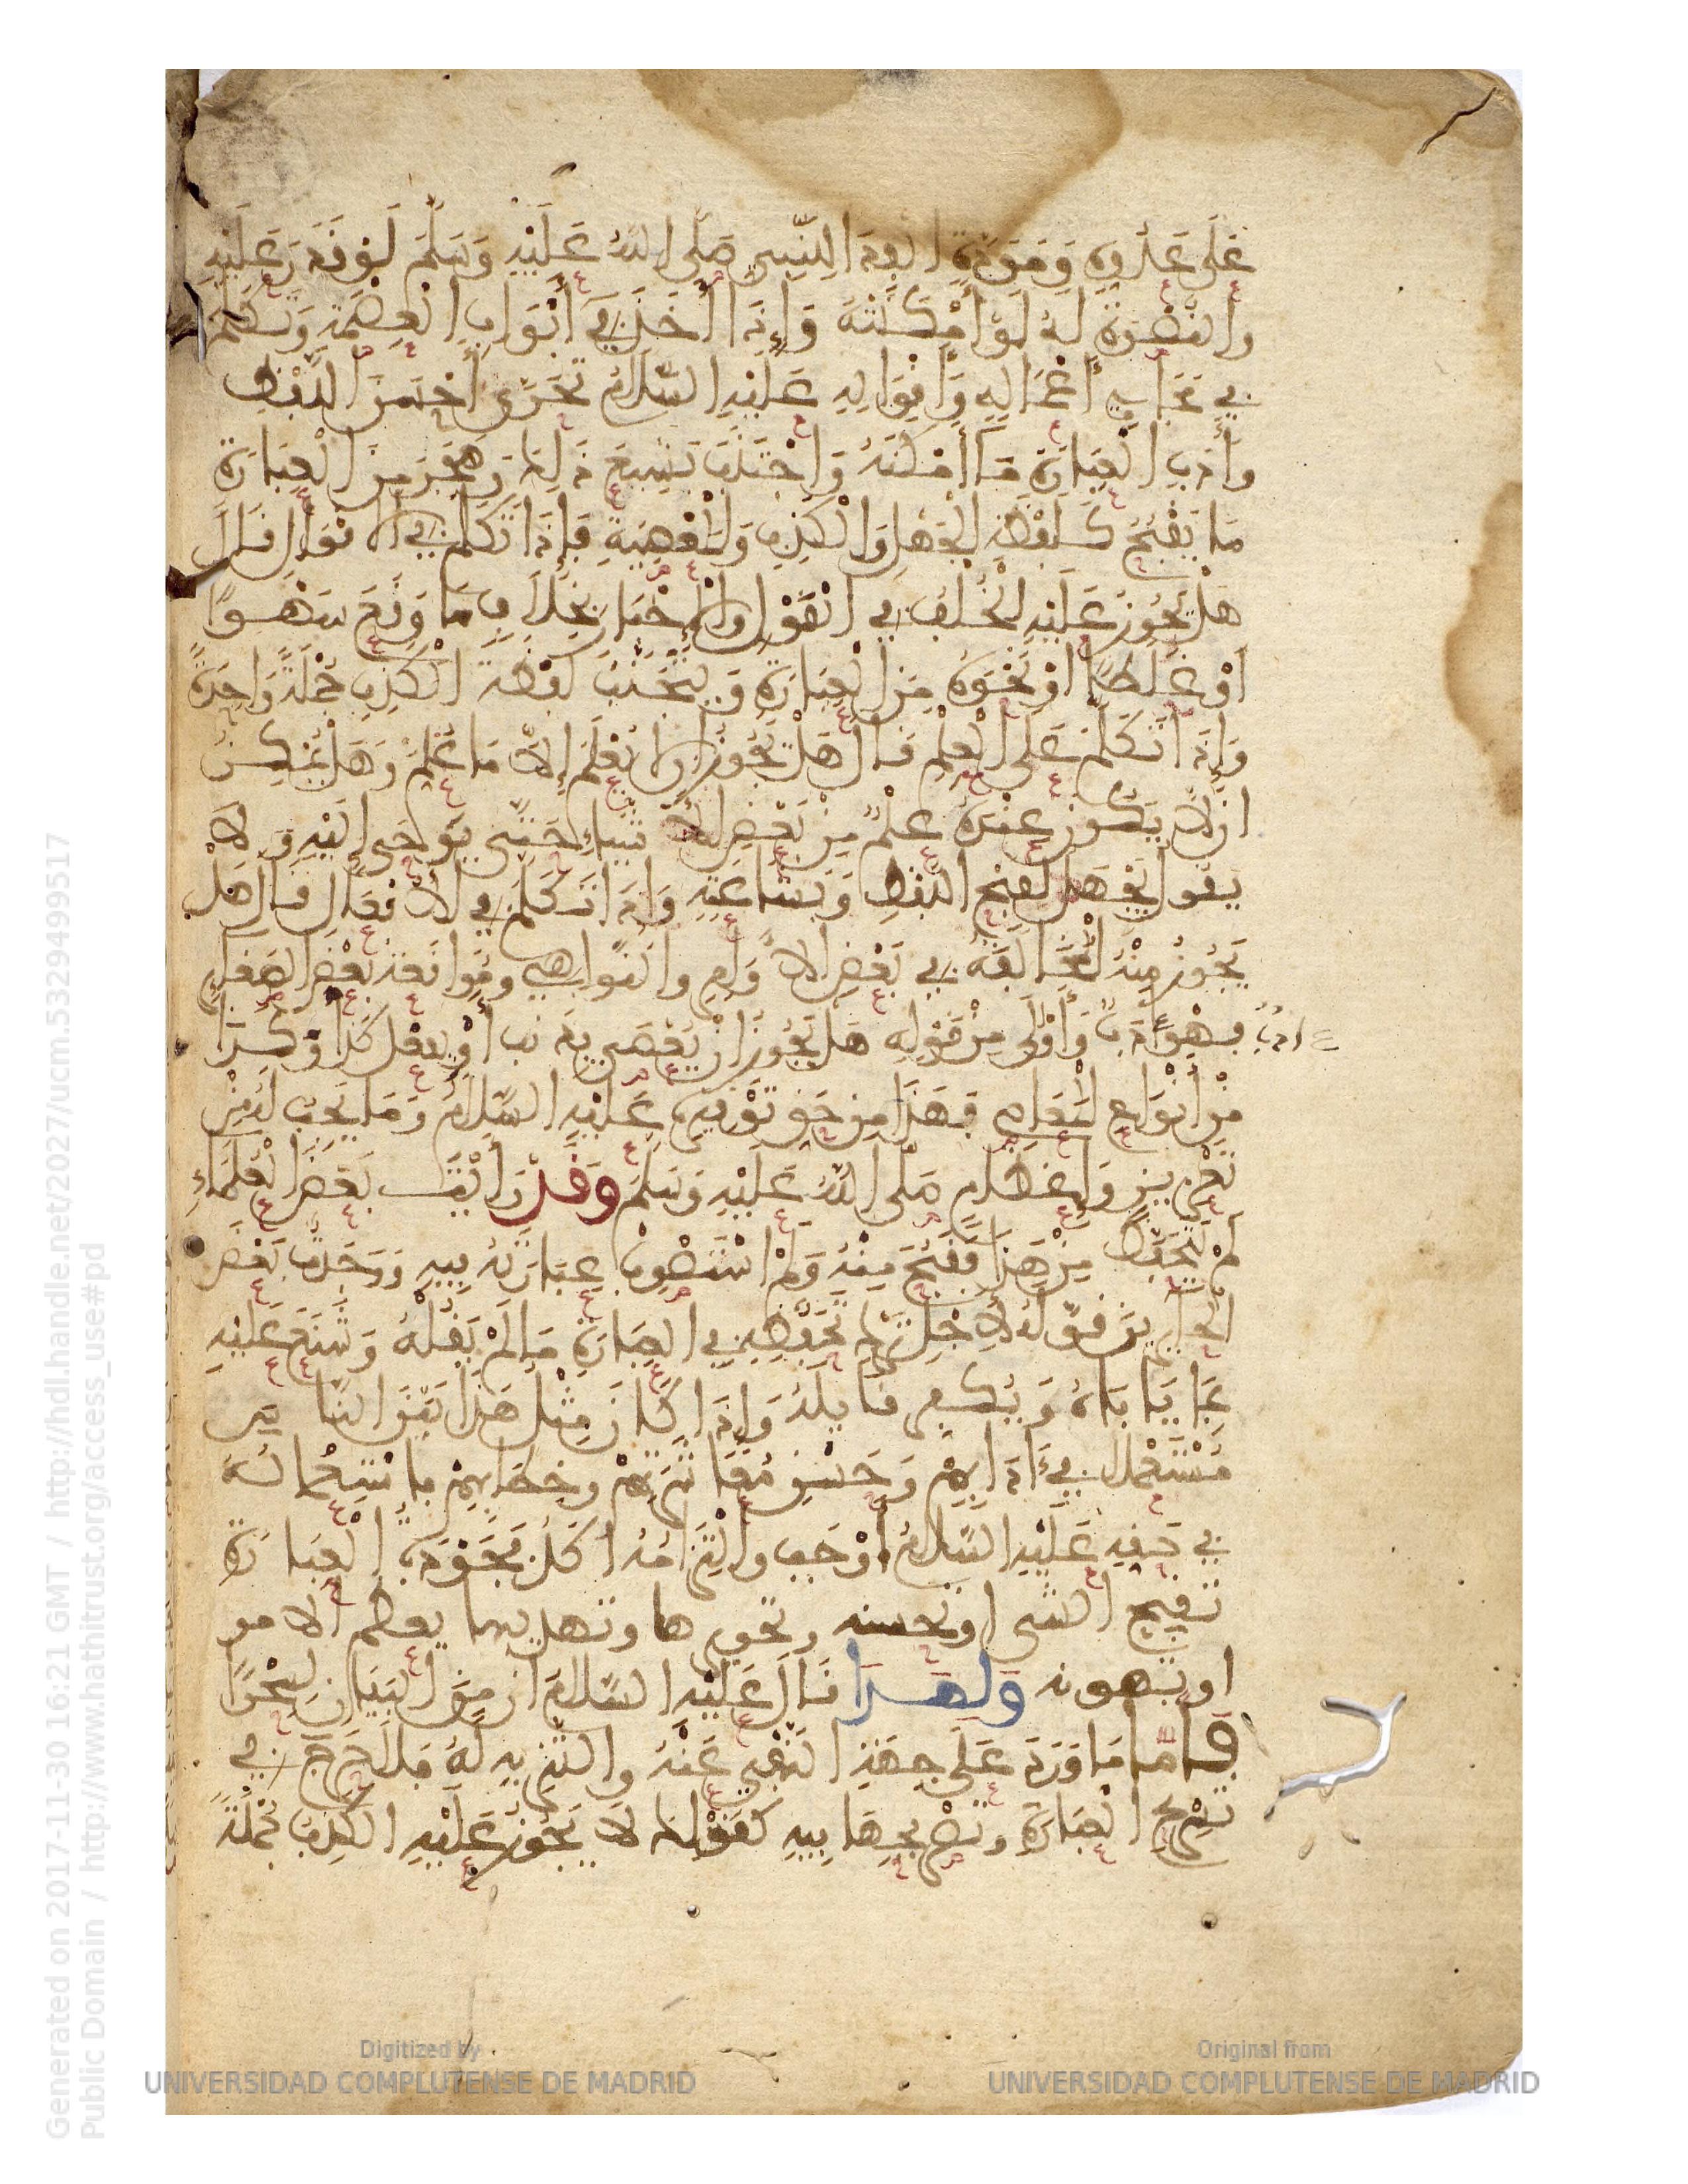 عَلَى عَدُوِّهِ وَمَوَدَّةِ الفِدَا لِلنَّبِيِّ صَلَّى اللهُ عَلَيْهِ وَسَلَّمَ لَوْ قَدَرَ عَلَيْهِ
وَالنُّصْرَة لَهُ لَوْ أَمْكَنَتْهُ وَإِذَا أَخَذَ فِي أَبْوَابِ الْعِصْمَةِ وَتَكَلَّمَ
فِي مَجَارِي أَعْمَالِهِ وَأَقْوَالِهِ عَلَيْهِ السَّلَامُ تَحَرَّى أَحْسَنَ اللَّفْظِ
وَأَدَبَ الْعِبَارَةِ مَا أَمْكَنَهُ وَاجْتَنَبَ بَشِيعَ ذَلِكَ وَهَجَرَ مِنَ الْعِبَارَةِ
مَا يَقْبُحُ كَلَفْظَةِ الْجَهْلِ وَالْكَذِبِ وَالْمَعْصِيَةِ فَإِذَا تَكَلَّمَ فِي الْأَقْوَالِ قَالَ
هَلْ يَجُوزُ عَلَيْهِ الْخُلْفُ فِي الْقَوْلِ وَالْإِخْبَارِ بِخِلَافِ مَا وَقَعَ سَهْوًا
أَوْ غَلَطًا أَوْ نَحْوَهُ مِنَ الْعِبَارَةِ وَيَتَجَنَّبُ لَفْظَةَ الْكَذِبِ جُمْلَةً وَاحِدَةً
وَإِذَا تَكَلَّمَ عَلَى الْعِلْمِ قَالَ هَلْ يَجُوزُ أَنْ لَا يَعْلَمَ إِلَّا مَا عُلِّمَ وَهَلْ يُمْكِنُ
أَنْ لَا يَكُونَ عِنْدَهُ عِلْمٌ مِنْ بَعْضِ الْأَشْيَاءِ حَتَّى يُوحَى إِلَيْهِ وَلَا
يَقُولُ بِجَهْلٍ لِقُبْحِ اللَّفْظِ وَبَشَاعَتِهِ وَإِذَا تَكَلَّمَ فِي الْأَفْعَالِ قَالَ هَلْ
يَجُوزُ مِنْهُ الْمُخَالَفَةُ فِي بَعْضِ الْأَوَامِرِ وَالنَّوَاهِي وَمُوَاقَعَةُ بَعْضِ الصَّغَائِرِ
ادب
فَهْوَ أَدَبٌ وَأَوْلَى مِنْ قَوْلِهِ هَلْ يَجُوزُ أَنْ يَعْصِيَ يُذْنِبَ أَوْ يَفْعَلَ كَذَا وَكَذَا
مِنْ أَنْوَاعِ الْمَعَاصِي فَهَذَا مِنْ حَقِّ تَوْقِيرِهِ عَلَيْهِ السَّلَامُ وَمَا يَجِبُ لَهُ مِنْ
تَعْزِيزٍ وَإِعْظَامٍ صَلَّى اللهُ عَلَيْهِ وَسَلَّمَ وَقَدْ رَأَيْتُ بَعْضَ الْعُلَمَاءِ
لَمْ يَتَحَفَّظْ مِنْ هَذَا فَقُبِّحَ مِنْهُ وَلَمْ أَسْتَصْوِبْ عِبَارَتَهُ فِيهِ وَوَجَدْتُ بَعْضَ
الْجَائِرِينَ قَوَّلَهُ لِأَجْلِ تَرْكِ تَحَفُّظِهِ فِي الْعِبَارَةِ مَا لَمْ يَقُلْهُ وَشَنَّعَ عَلَيْهِ
بِمَا يَابَاهُ وَيُكَفِّرُ قَائِلَهُ وَإِذَا كَانَ مِثْلُ هَذَا بَيْنَ النَّاسِ
مُسْتَعْمَلًا فِي آدَابِهِمْ وَحُسْنِ مُعَاشَرَتِهِمْ وَخِطَابِهِمْ فَاسْتِعْمَالُهُ
فِي حَقِّهِ عَلَيْهِ السَّلَامُ أَوْجَبُ وَالْتِزَامُهُ آكَدُ فَجَوْدَةُ الْعِبَارَةِ
تقبح الشي او تحسنه وتحريرها وتهذيبها يعظم الامر
او يهونه وَلِهَذَا قَالَ عَلَيْهِ السَّلَامُ إِنَّ مِنَ الْبَيَانِ لَسِحْرًا
فَأَمَّا مَا وَرَدَ عَلَى جِهَةِ النَّفْيِ عَنْهُ وَالتَّنْزِيهِ لَهُ فَلَا حَرَجَ فِي
تَسْرِيحِ الْعِبَارَةِ وَتَصْرِيحِهَا فِيهِ كَقَوْلِنَا لَا يَجُوزُ عَلَيْهِ الْكَذِبُ جُمْلَةً
Digitized by
UNIVERSIDAD COMPLUTENSE DE MADRID
Original from
UNIVERSIDAD COMPLUTENSE DE MADRID
Generated on 2017-11-30 16:21 GMT / http://hdl.handle.net/2027/ucm.5329499517
Public Domain / http://www.hathitrust.org/access_use#pd